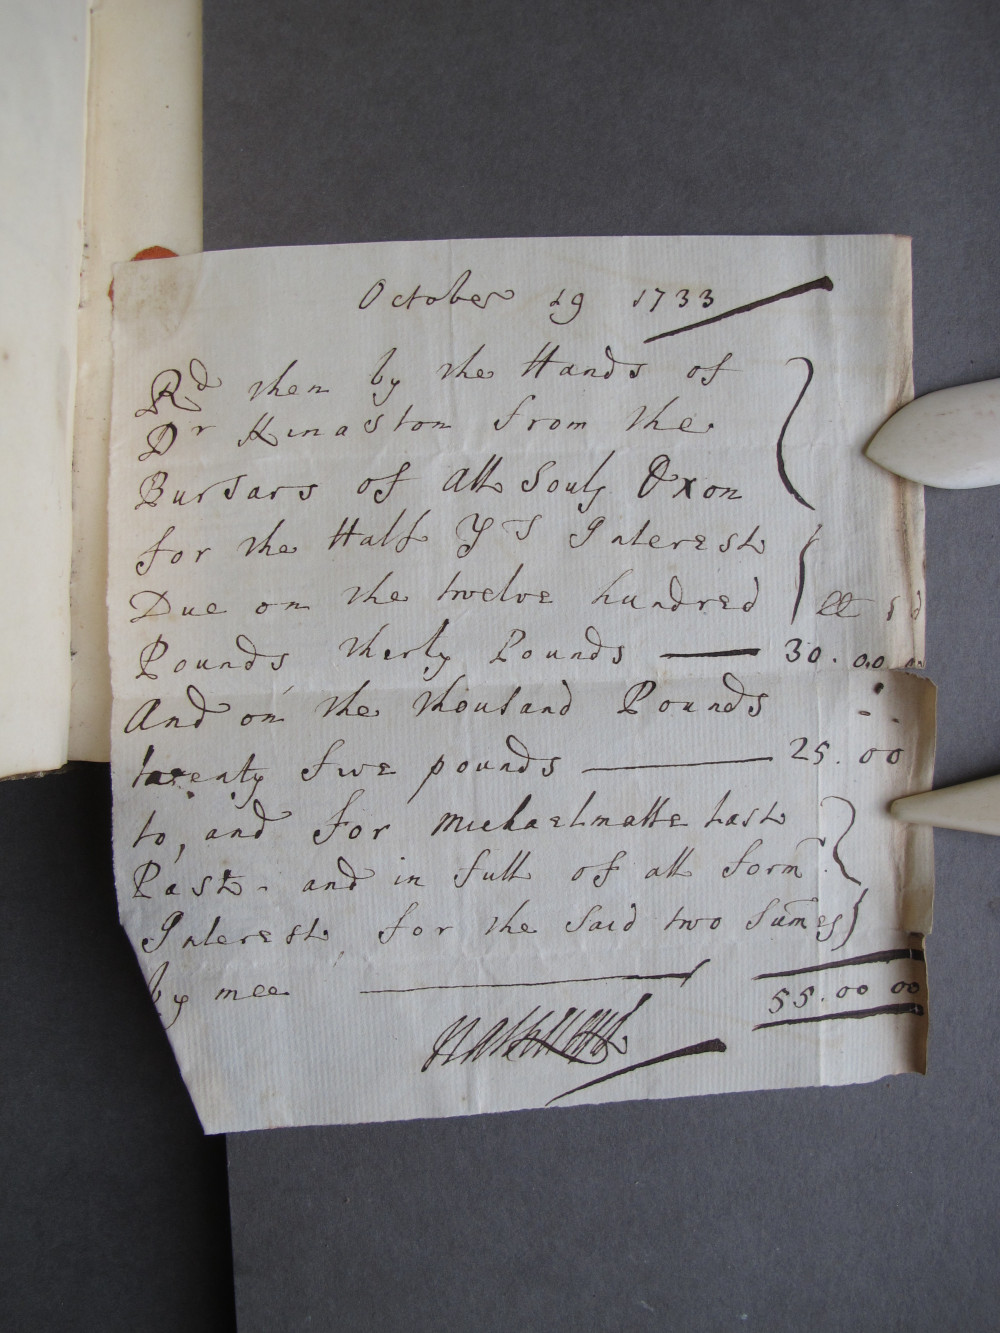 October 19 1733
Rd then by the Hands of
Dr Kinaston from the
Bursars of All Souls Oxon
for the Half Ys Interest
Due on the twelve hundred ll s d
Pounds therty Pounds — 30 . 00 00
And on the thousand Pounds
twenty five pounds — 25 . 00
to, and for Michaelmasse Last
Past - and in full of all form
Interest for the Said two Sumes
by mee — 55 . 00 00